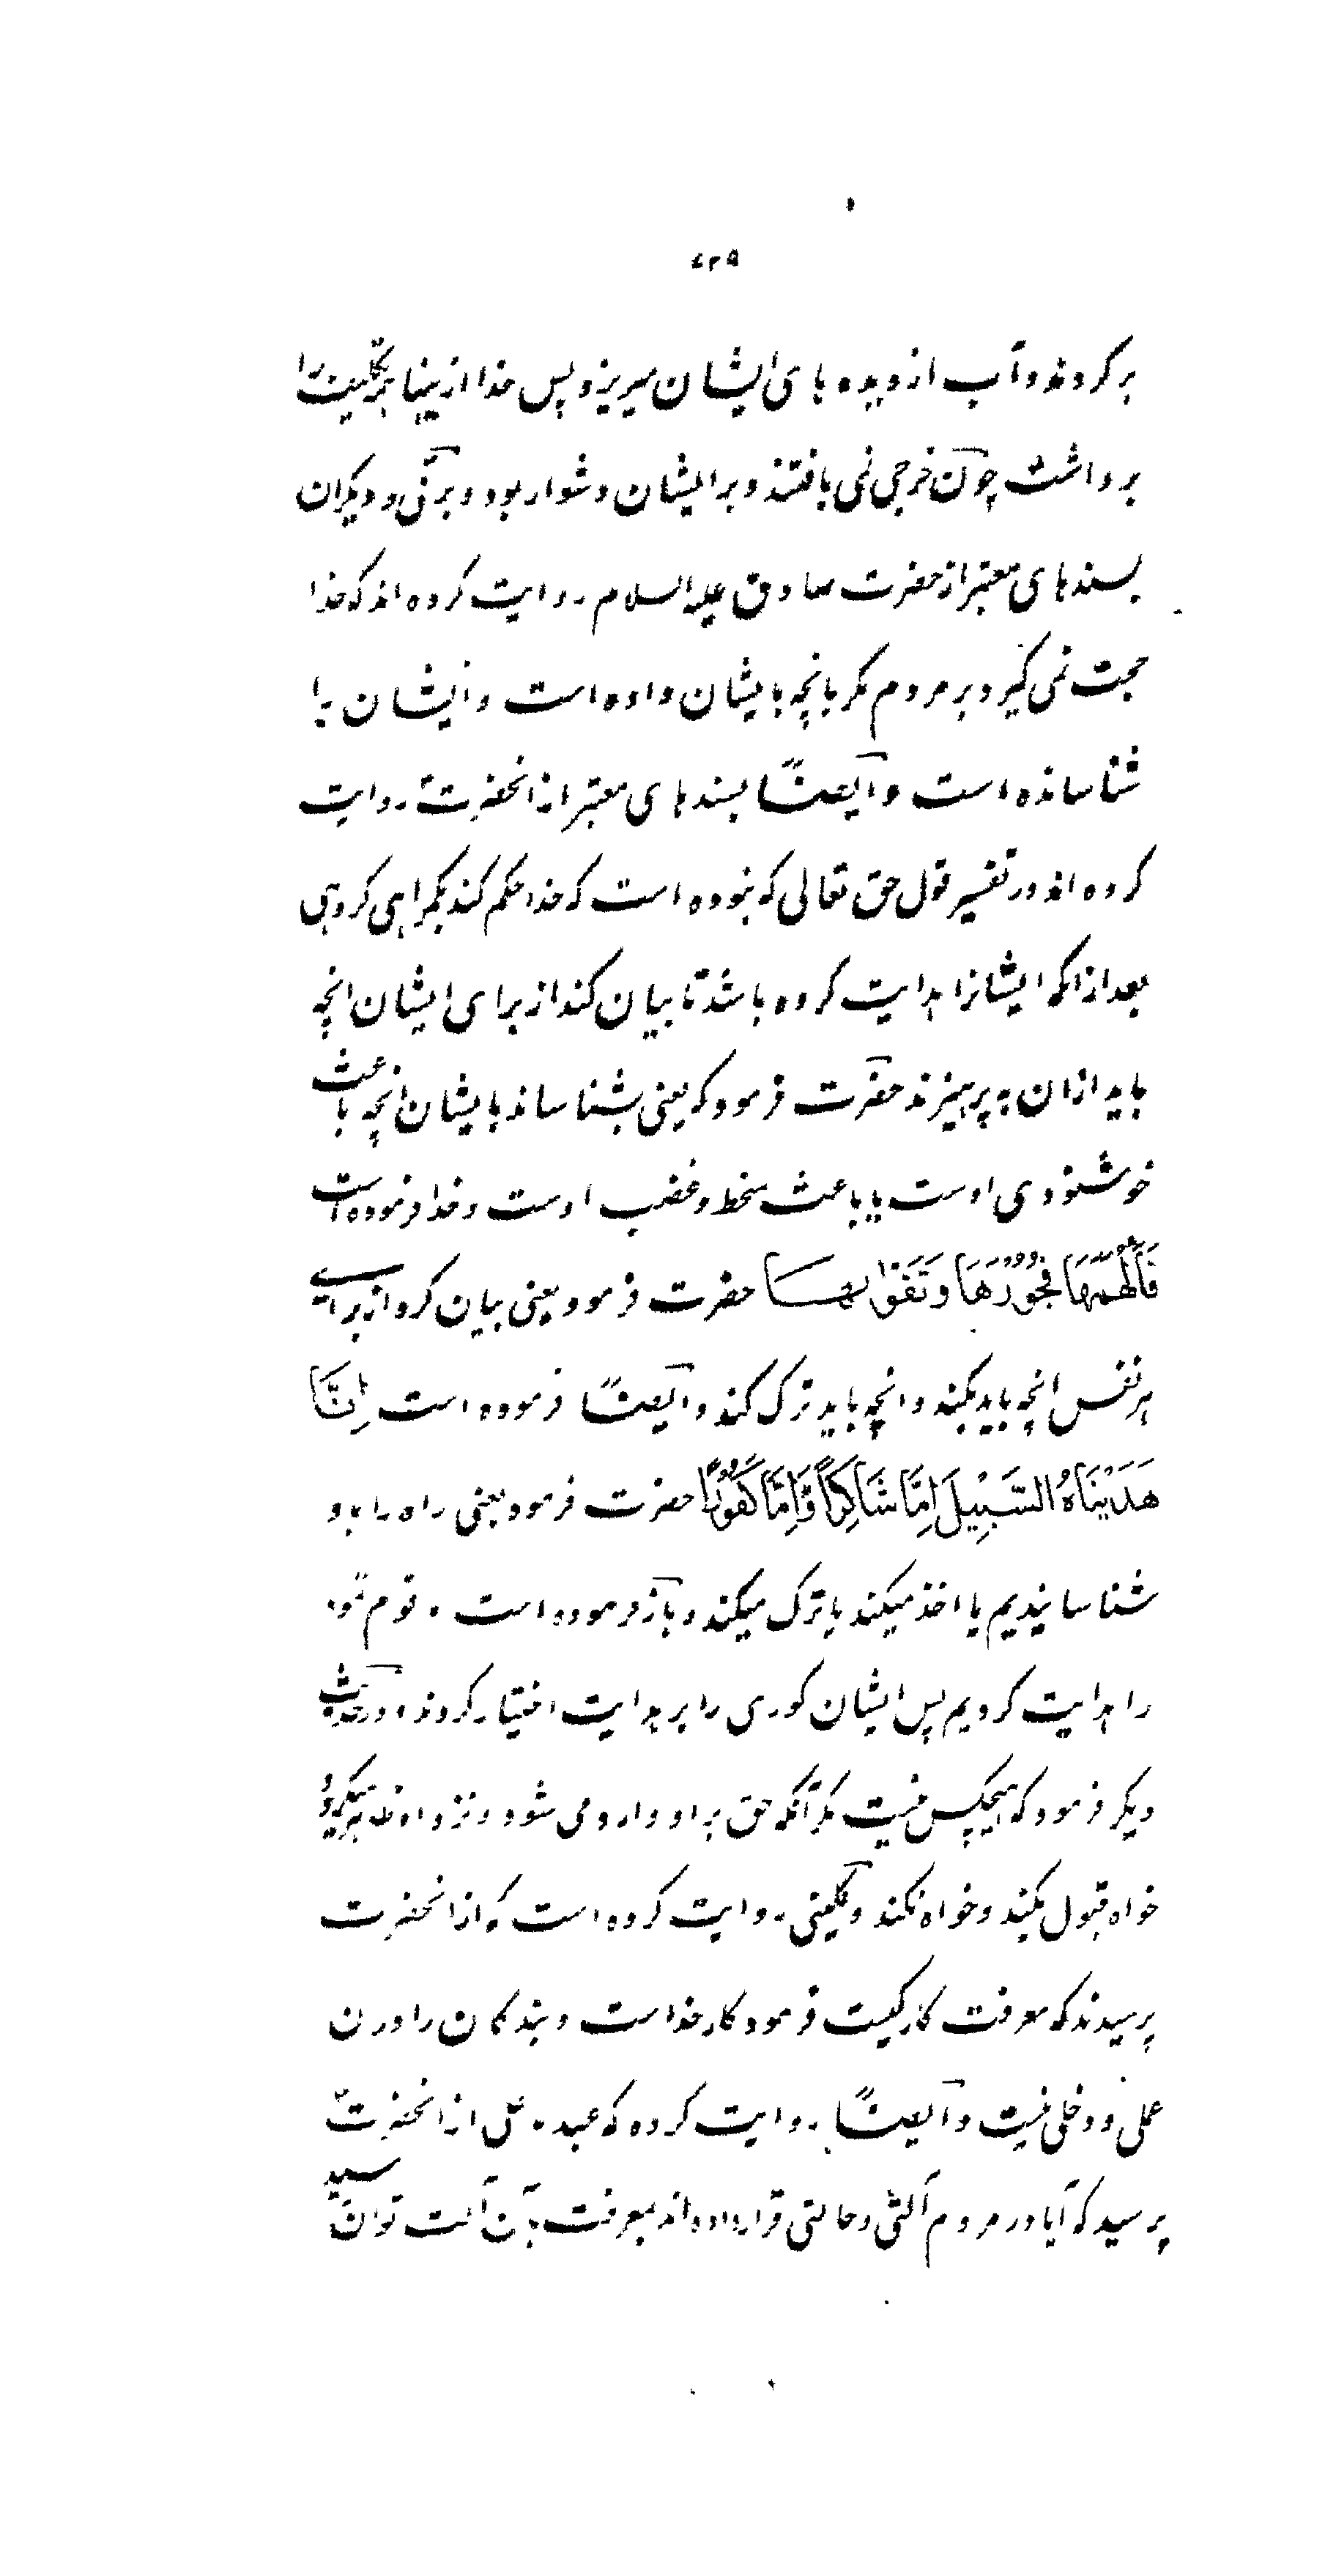 ۷۲۹
بر کردند و آب از دیده های ایشان میریزد پس خدا از اینها تکلیف را
برداشت چون خرجی نمی یافتند و بر ایشان دشوار بود و برقی و دیکران
بسندهای معتبر از حضرت صادق علیه السلام روایت کرده اند که خدا
حجت نمی کیرد بر مردم مکر بانچه بایشان داده است و ایشان را
شناسانده است و ایضًا بسندهای معتبر از انحضرت روایت
کرده اند در تفسیر قول حق تعالی که نبوده است که خدا حکم کند بکمراهی کروهی
بعد از انکه ایشانرا هدایت کرده باشد تا بیان کند از برای ایشان انچه
باید ازان به پرهیزند حضرت فرمود که یعنی بشناساند بایشان انچه باعث
خوشنودی اوست یا باعث سخط و غضب اوست و خدا فرموده است
فَاَلْهَمَهَا فُجُوْرَهَا وَتَقْوٰىهَا حضرت فرمود یعنی بیان کرد از برای
هر نفس انچه باید بکند و انچه باید ترک کند و ایضًا فرموده است اِنَّا
هَدَیْنَاهُ السَّبِیْلَ اِمَّا شَاکِرًا وَّاِمَّا کَفُوْرًا حضرت فرمود یعنی راه را باو
شناساندیم یا اخذ میکند یا ترک میکند و باز فرموده است قوم ثمود
را هدایت کردیم پس ایشان کوری را بر هدایت اختیار کردند و در حدیث
دیکر فرمود که هیچکس نیست مکر آنکه حق بر او وارد می شود و نزد او ظاهر میکردد
خواه قبول بکند و خواه نکند و کلینی روایت کرده است که از انحضرت
پرسیدند که معرفت کار کیست فرمود کار خداست و بندکان را در ان
عملی و دخلی نیست و ایضًا روایت کرده که عبد الاعلی از انحضرت
پرسید که آیا در مردم آلتی و حالتی قرار داده اند بمعرفت بآن آلت توان رسید